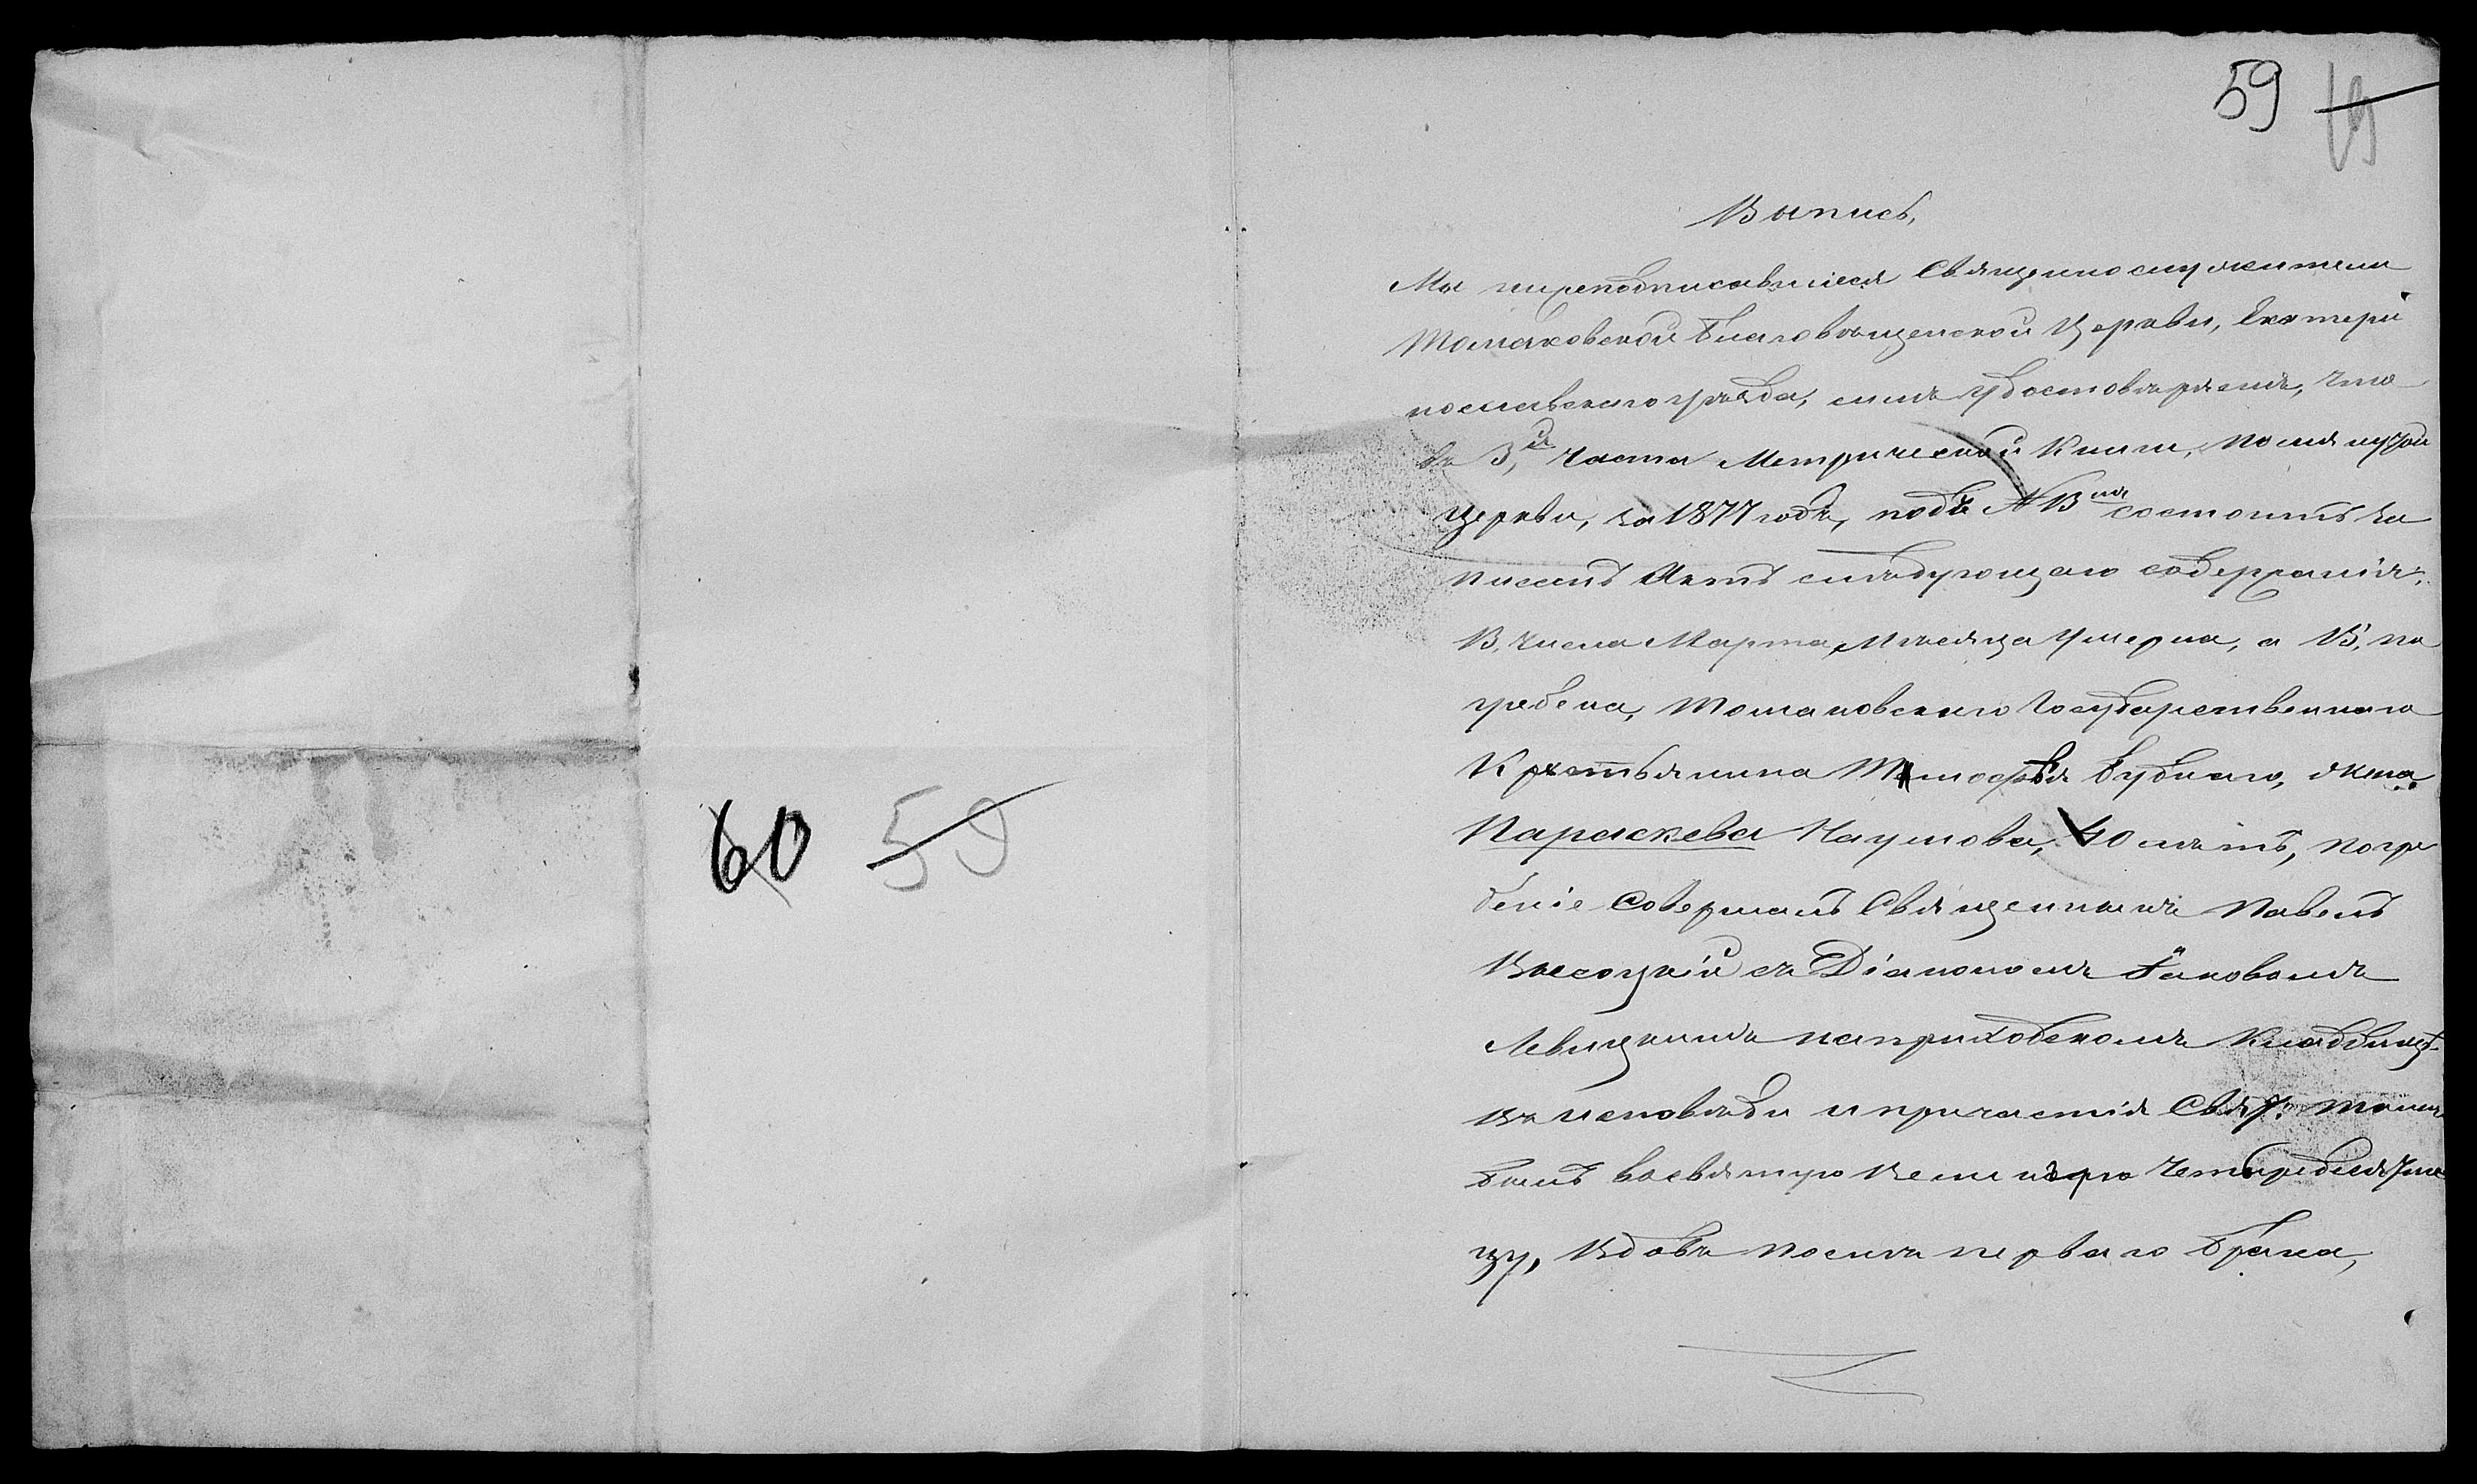 59
Выпись,
Мы нижеподписавшіеся Священнослужители
Томаковской Благовѣщенской Церкви, Екатери
нославскаго уѣзда, симъ удостовѣряемъ, что
въ 3,й части Метрической Книги, помянутой
церкви, за 1877 годъ, подъ № 13мъ состоитъ за
писанъ Актъ слѣдующаго содержанія:
13, числа Марта, Мѣсяца умерла, а 15, по
гребена, Томаковскаго Государственнаго
Крестьянина Тимофѣя Бубнаго, жена
Параскева Наумова, 40 лѣтъ, погре
беніе Совершалъ Священникъ Павелъ
Высоцкій съ Діакономъ Яковомъ
Левицкимъ на приходскомъ Кладбищѣ.
на исповѣди и причастія Свят. Таинъ
былъ во святую Великую Четыредесятни
цу, Вдовъ послѣ перваго брака,
60 59